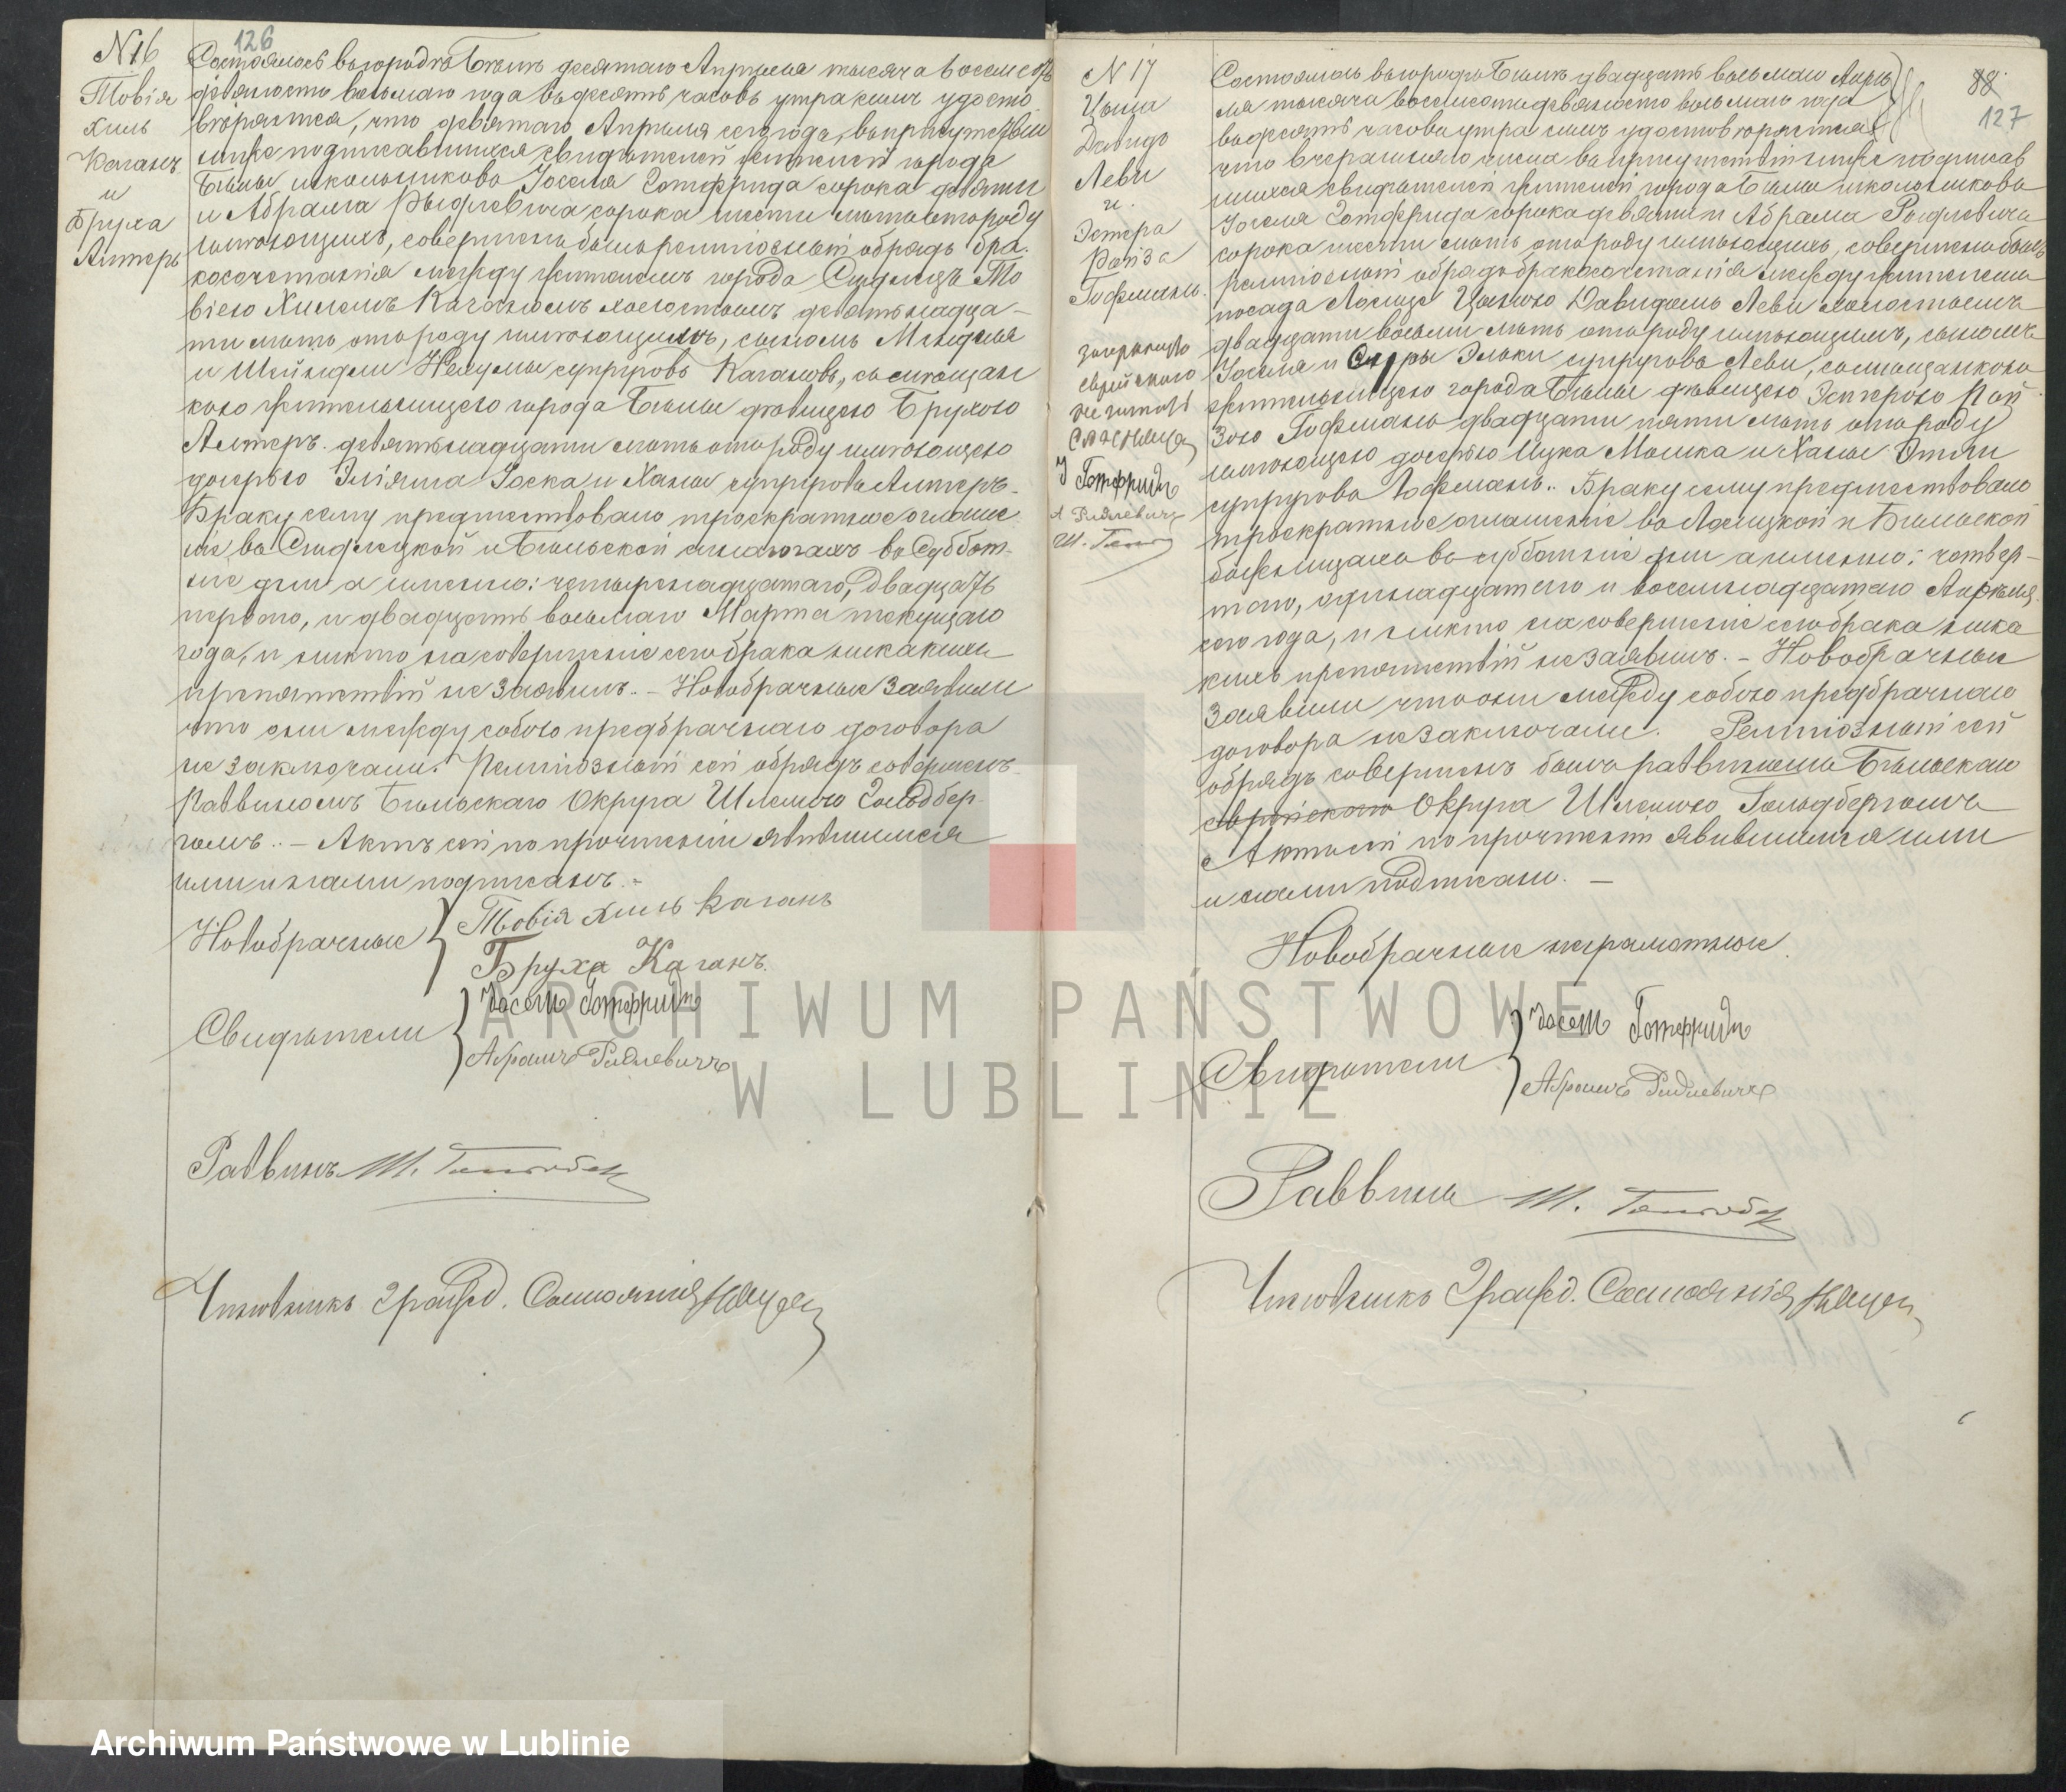 126
№16
Товія
Хиль
Каганъ
и
Бруха
Альтеръ
Состоялось въ городѣ Бѣлѣ десятаго Апрѣля тысяча восемьсотъ
девяносто восьмаго года въ десять часовъ утра симъ удосто-
вѣряется, что девятаго Апрѣля сего года, въ присутствіи
ниже подписавшихся свидѣтелей жителей города
Бѣлы школьниковъ Іоселя Готфрида сорока девяти
и Абрама Рыдлевича сорока шести лѣтъ отъ роду
имѣющихъ, совершенъ былъ религіозный обрядъ бра-
косочетанія между жителемъ города Сѣдлецъ То
віею Хилемъ Каганомъ холостымъ девятьнадца-
ти лѣтъ отъ роду имѣющимъ, сыномъ Менделя
и Шейндли Нехумы супруговъ Кагановъ, съ мѣщан
кою жительницею города Бѣлы дѣвицею Брухою
Альтеръ девятьнадцати лѣтъ отъ роду имѣющею
дочерью Эліяша Іоска и Ханы супруговъ Альтеръ.
Браку сему предшествовало троекратное оглаше
ніе въ Сѣдлецкой и Бѣльской синагогахъ въ Суббот-
ніе дни а именно: четырнадцатаго, двадцать
перваго, и двадцать восьмаго Марта текущаго
года, и никто на совершеніе сего брака никакихъ
препятствій не заявилъ. – Новобрачные заявили
что они между собою предбрачнаго договора
не заключали. Религіозный сей обрядъ совершенъ
Раввиномъ Бѣльскаго Округа Шлемою Гольдбер-
гомъ. – Актъ сей по прочтеніи явившимися
ими и нами подписанъ. –
Новобрачные
Товія Хиль Каганъ
Бруха Каганъ.
Свидѣтели
Іосель Готфридъ
Абрамъ Рыдлевичъ
Раввинъ Ш. Гольдбергъ
Чиновникъ Гражд. Состоянія
88
127
№17
Цыша
Давидъ
Леви
и
Эстера
Ройза
Гофманъ.
зачеркнуто
еврейскаго
не читать
І Готфридъ
А Рыдлевичъ
Состоялось въ городѣ Бѣлѣ двадцать восьмаго Апрѣ
ля тысяча восемьсотъ девяносто восьмаго года
въ десять часовъ утра симъ удостовѣряется
что вчерашняго числа въ присутствіи ниже подписав
шихся свидѣтелей жителей города Бѣлы школьниковъ
Іоселя Готфрида сорока девяти и Абрама Рыдлевича
сорока шести лѣтъ отъ роду имѣющихъ, совершенъ былъ
религіозный обрядъ бракосочетанія между жителемъ
посада Лосице Давидомъ Леви холостымъ
двадцати восьми лѣтъ отъ роду имѣющимъ, сыномъ
Іоселя и Эльки супруговъ Леви, съ мѣщанкою
жительницею города Бѣлы дѣвицею Эстерою Рой
зою Гофманъ двадцати пяти лѣтъ отъ роду
имѣющею дочерью Ицка Мошка и Ханы
супруговъ Гофманъ. Браку сему предшествовало
троекратное оглашеніе въ Лосицкой и Бѣльской
божницахъ въ субботніе дни а именно: четвер-
таго, одинадцатаго и восемнадцатаго Апрѣля
сего года, и никто на совершеніе сего брака ника
кихъ препятствій не заявилъ. – Новобрачные
заявили что они между собою предбрачнаго
договора не заключали. Религіозный сей
обрядъ совершенъ былъ раввиномъ Бѣльскаго
еврейскаго Округа Шлемою Гольдбергомъ
Актъ сей по прочтеніи явившимися ими
и нами подписанъ. –
Новобрачные неграмотные.
Свидѣтели
Іосель Готфридъ
Абрамъ Рыдлевичъ
Раввинъ Ш. Гольдбергъ
Чиновникъ Гражд. Состоянія
ARCHIWUM PAŃSTWOWE
W LUBLINIE
Archiwum Państwowe w Lublinie